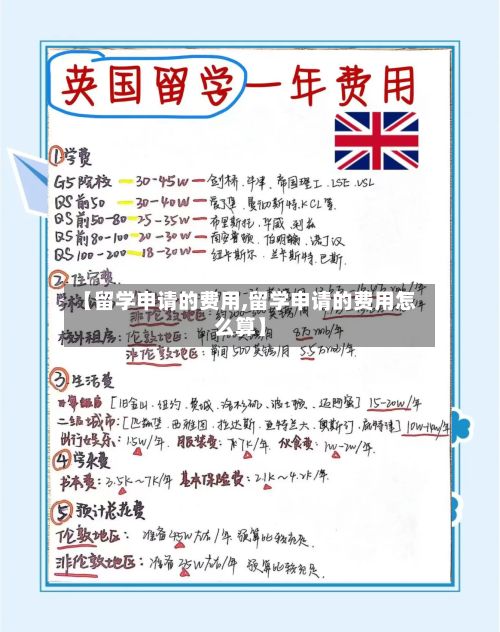 英国留学一年费用
①学费
G5院校 — 30-45W — 剑桥、牛津、帝国理工、LSE、USL
QS前50 — 30-40W — 爱丁堡、曼彻斯特、KCL等
QS前50-80 — 25-35W — 布里斯托、华威、利兹
QS前80-100 — 20-30W — 南安普顿、伯明翰、诺丁汉
QS100-200 — 18-30W — 纽卡斯尔、兰卡斯特、巴斯
②住宿费
【留学申请的费用,留学申请的费用怎么算】
非伦敦地区:
校外租房: 伦敦地区: 8万rmb/年
非伦敦地区: 单间500英镑/月 5.5万rmb/年
③生活费
[旧金山、纽约、费城、洛杉矶、波士顿、迈阿密] 15-20W/年
二线城市:[匹兹堡、西雅图、拉达斯、亚特兰大、奥斯订、底特律] 10W-14W/年
出行娱乐:1.5W/年. 服装费: 伙食费: 1W-2W/年.
④学杂费
书本费:3.5K~7K/年 基本保险费:2.1K~4.2K/年.
⑤预计总花费
伦敦地区: 准备45W左右/年 预算比较充足.
非伦敦地区: 准备35W左右/年 预算比较充足.